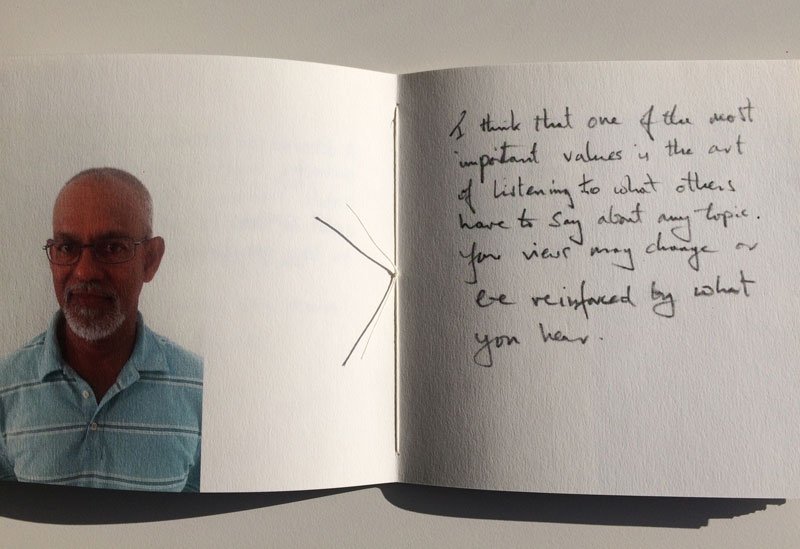 I think that one of the most
important values is the art
of listening to what others
have to say about any topic.
Your views may change or
be reinforced by what
you hear.